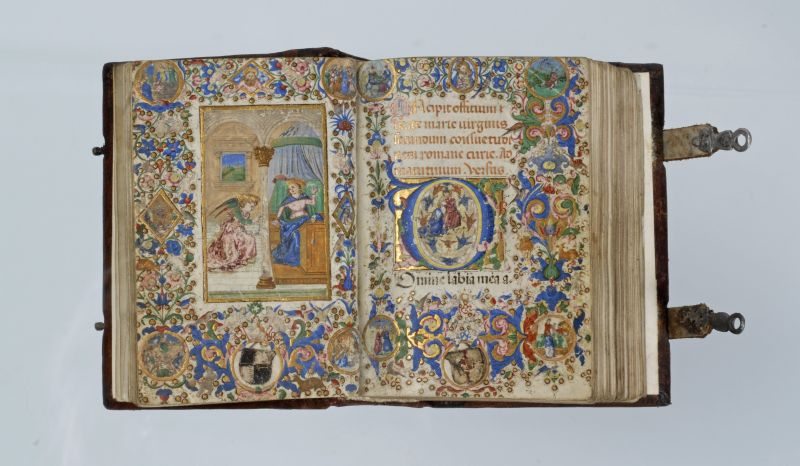 Incipit offitium b
beate marie virginis
secundum consuetudi
nem romane curie. Ad
matutinum. Versus
Domine labia mea a.